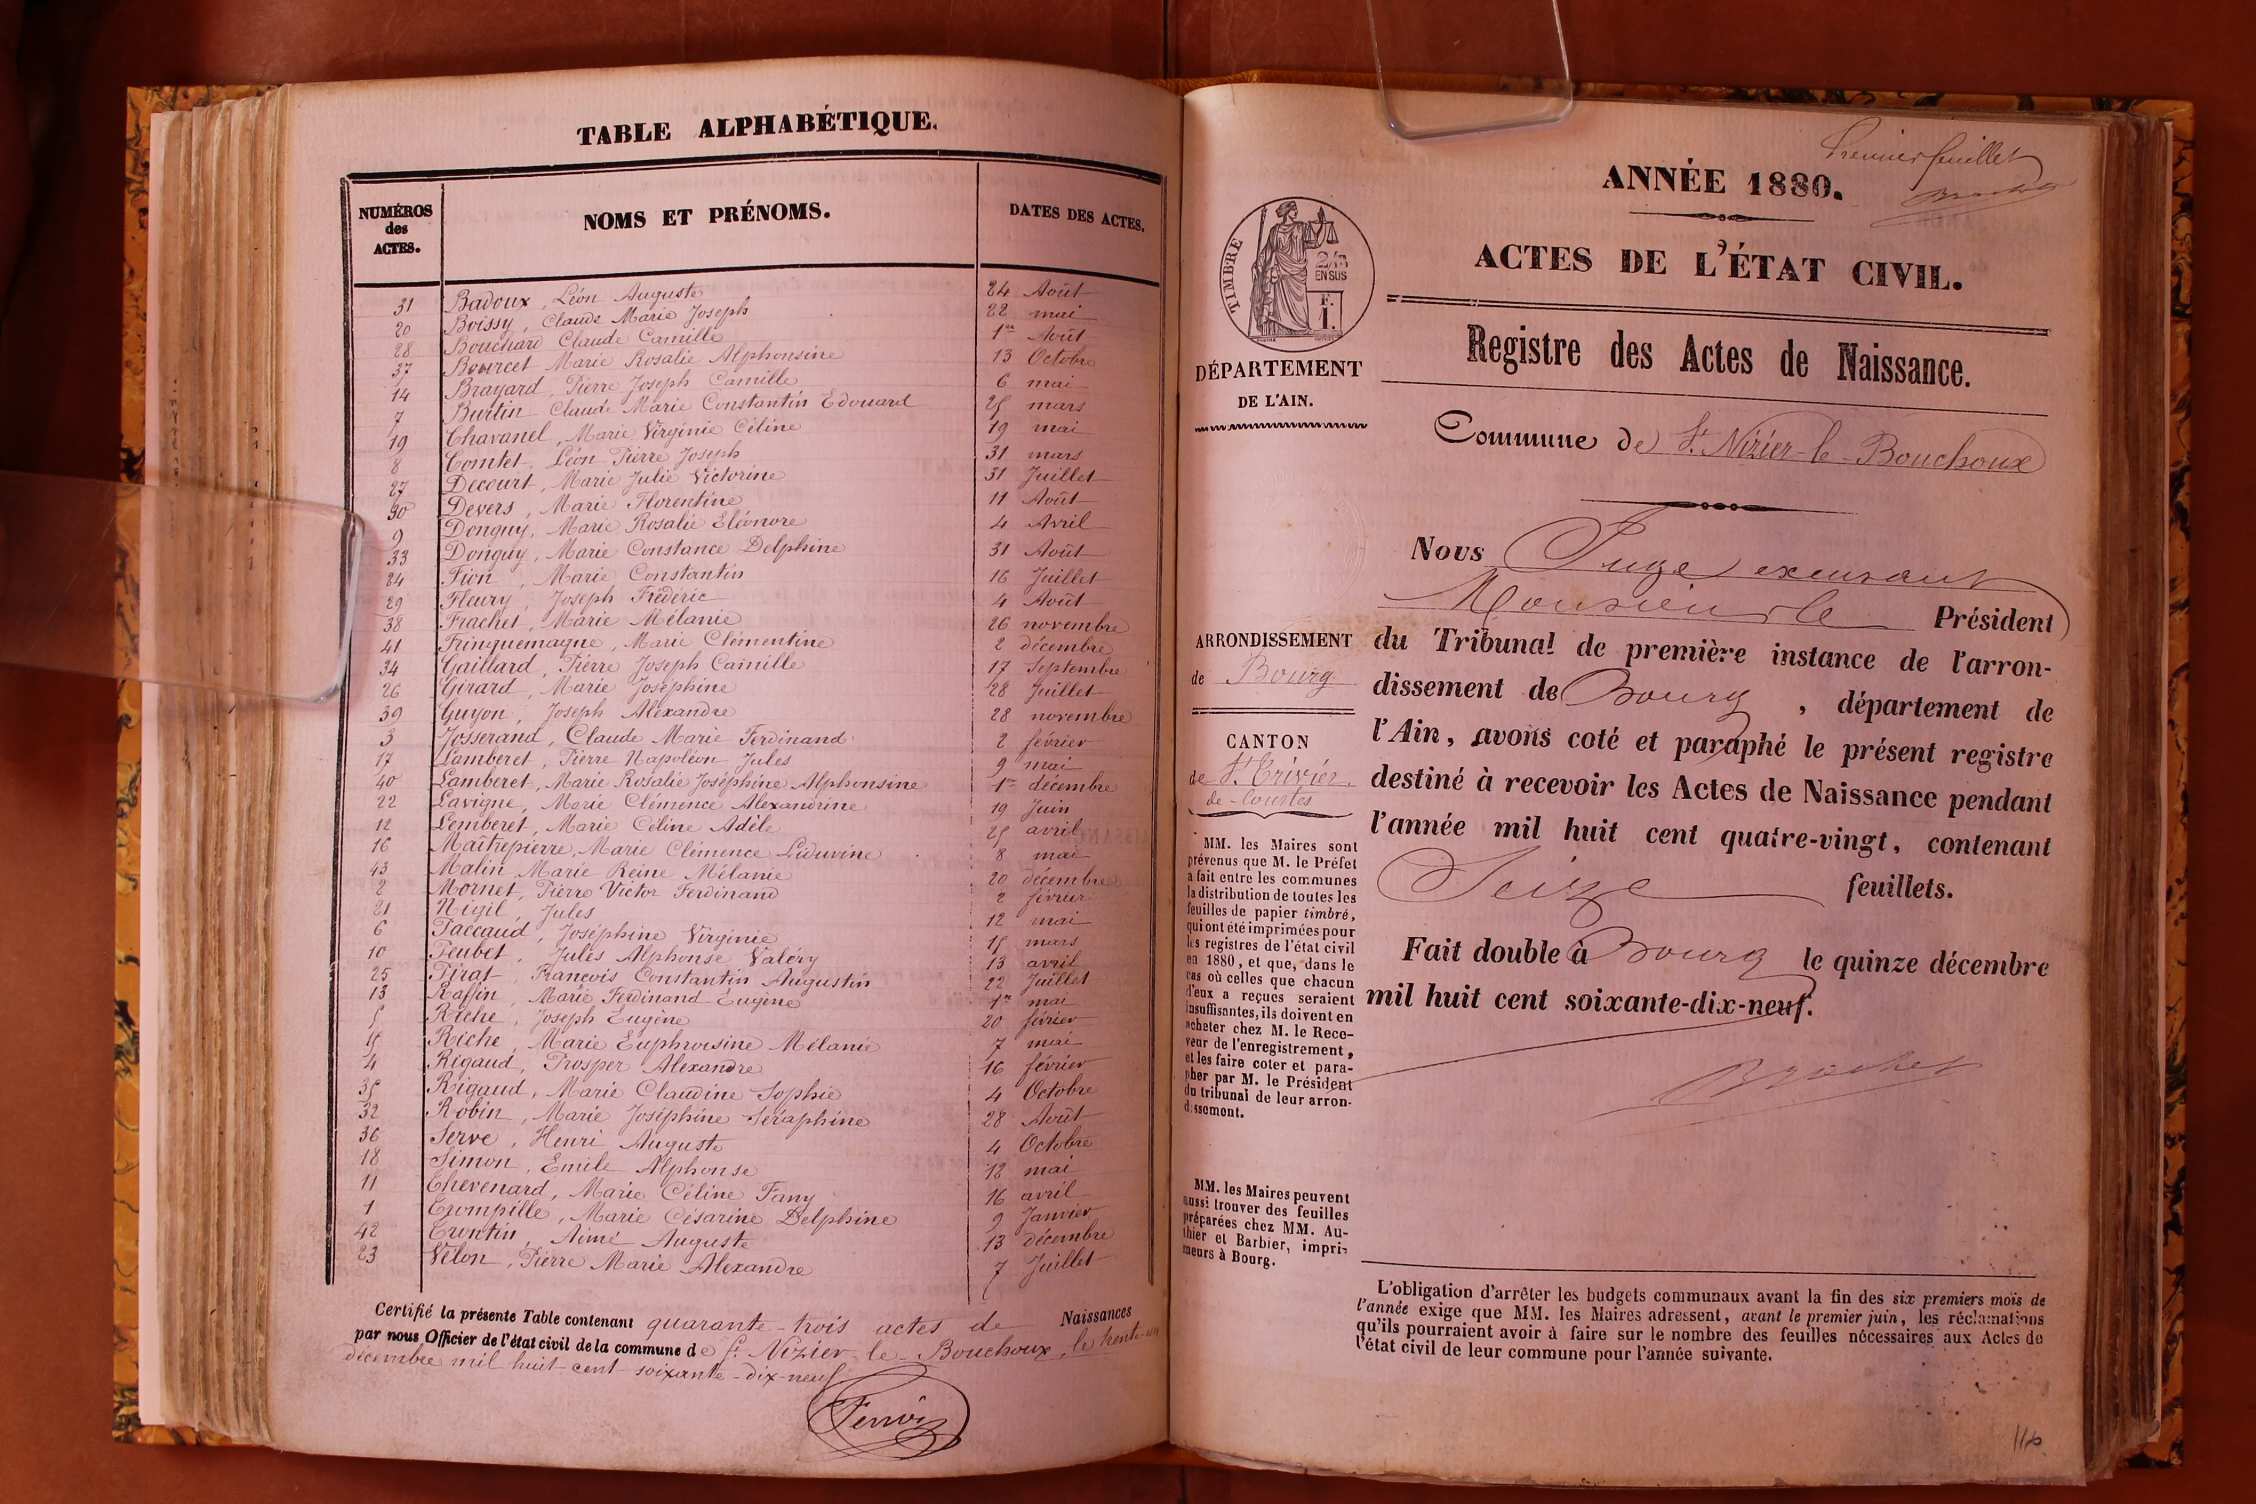 TABLE ALPHABÉTIQUE.
NUMÉROS des ACTES. NOMS ET PRÉNOMS. DATES DES ACTES.
31 Badoux, Léon Auguste 24 Août
20 Boissy, Claude Marie Joseph 22 mai
28 Bouchard Claude Camille 1er Août
37 Bourcet Marie Rosalie Alphonsine 13 Octobre
14 Brayard, Pierre Joseph Camille 6 mai
7 Burtin Claude Marie Constantin Edouard 25 mars
19 Chavanel, Marie Virginie Céline 19 mai
8 Comtet, Léon Pierre Joseph 31 mars
27 Decourt, Marie Julie Victorine 31 Juillet
30 Devers, Marie Florentine 11 Août
9 Donguy, Marie Rosalie Eléonore 4 Avril
33 Donguy, Marie Constance Delphine 31 Août
24 Fion, Marie Constantin 16 Juillet
29 Fleury, Joseph Fréderic 4 Août
38 Frachet, Marie Mélanie 26 novembre
41 Fringuemagne, Marie Clémentine 2 décembre
34 Gaillard, Pierre Joseph Camille 17 Septembre
26 Girard, Marie Joséphine 28 Juillet
39 Guyon, Joseph Alexandre 28 novembre
3 Josserand, Claude Marie Ferdinand 2 février
17 Lamberet, Pierre Napoléon Jules 9 mai
40 Lamberet, Marie Rosalie Joséphine Alphonsine 1er décembre
22 Lavigne, Marie Clémence Alexandrine 19 Juin
12 Lemberet, Marie Céline Adèle 25 avril
16 Maîtrepierre, Marie Clémence Liduvine 8 mai
43 Malin Marie Reine Mélanie 20 décembre
2 Mornet, Pierre Victor Ferdinand 2 février
21 Nigil, Jules 12 mai
6 Paccaud, Joséphine Virginie 15 mars
10 Peubet, Jules Alphonse Valéry 13 avril
25 Pirat, François Constantin Augustin 22 Juillet
13 Raffin, Marie Ferdinand Eugène 1er mai
5 Riche, Joseph Eugène 20 février
15 Riche, Marie Euphroisine Mélanie 7 mai
4 Rigaud, Prosper Alexandre 16 février
35 Rigaud, Marie Claudine Sophie 4 Octobre
32 Robin, Marie Joséphine Séraphine 28 Août
36 Serve, Henri Auguste 4 Octobre
18 Simon, Emile Alphonse 12 mai
11 Thevenard, Marie Céline Fany 16 avril
1 Trompille, Marie Césarine Delphine 9 Janvier
42 Trontin, Aimé Auguste 13 décembre
23 Vélon, Pierre Marie Alexandre 7 Juillet
Certifié la présente Table contenant quarante-trois actes de Naissances
par nous Officier de l'état civil de la commune de St Nizier le Bouchoux, le trente-un
décembre mil huit cent soixante-dix-neuf
Premier feuillet
ANNÉE 1880.
ACTES DE L'ÉTAT CIVIL.
TIMBRE
2/10
EN SUS
F.
1.
Registre des Actes de Naissance.
DÉPARTEMENT
DE L'AIN.
Commune de St Nizier-le-Bouchoux
ARRONDISSEMENT
de Bourg
CANTON
de St Trivier
de-Courtes
MM. les Maires sont
prévenus que M. le Préfet
a fait entre les communes
la distribution de toutes les
feuilles de papier timbré,
qui ont été imprimées pour
les registres de l'état civil
en 1880, et que, dans le
cas où celles que chacun
d'eux a reçues seraient
insuffisantes, ils doivent en
acheter chez M. le Rece-
veur de l'enregistrement,
et les faire coter et para-
pher par M. le Président
du tribunal de leur arron-
dissement.
MM. les Maires peuvent
aussi trouver des feuilles
préparées chez MM. Au-
thier et Barbier, impri-
meurs à Bourg.
Nous Juge excusant
Monsieur le Président
du Tribunal de première instance de l'arron-
dissement de Bourg, département de
l'Ain, avons coté et paraphé le présent registre
destiné à recevoir les Actes de Naissance pendant
l'année mil huit cent quatre-vingt, contenant
Seize feuillets.
Fait double à Bourg le quinze décembre
mil huit cent soixante-dix-neuf.
L'obligation d'arrêter les budgets communaux avant la fin des six premiers mois de
l'année exige que MM. les Maires adressent, avant le premier juin, les réclamations
qu'ils pourraient avoir à faire sur le nombre des feuilles nécessaires aux Actes de
l'état civil de leur commune pour l'année suivante.